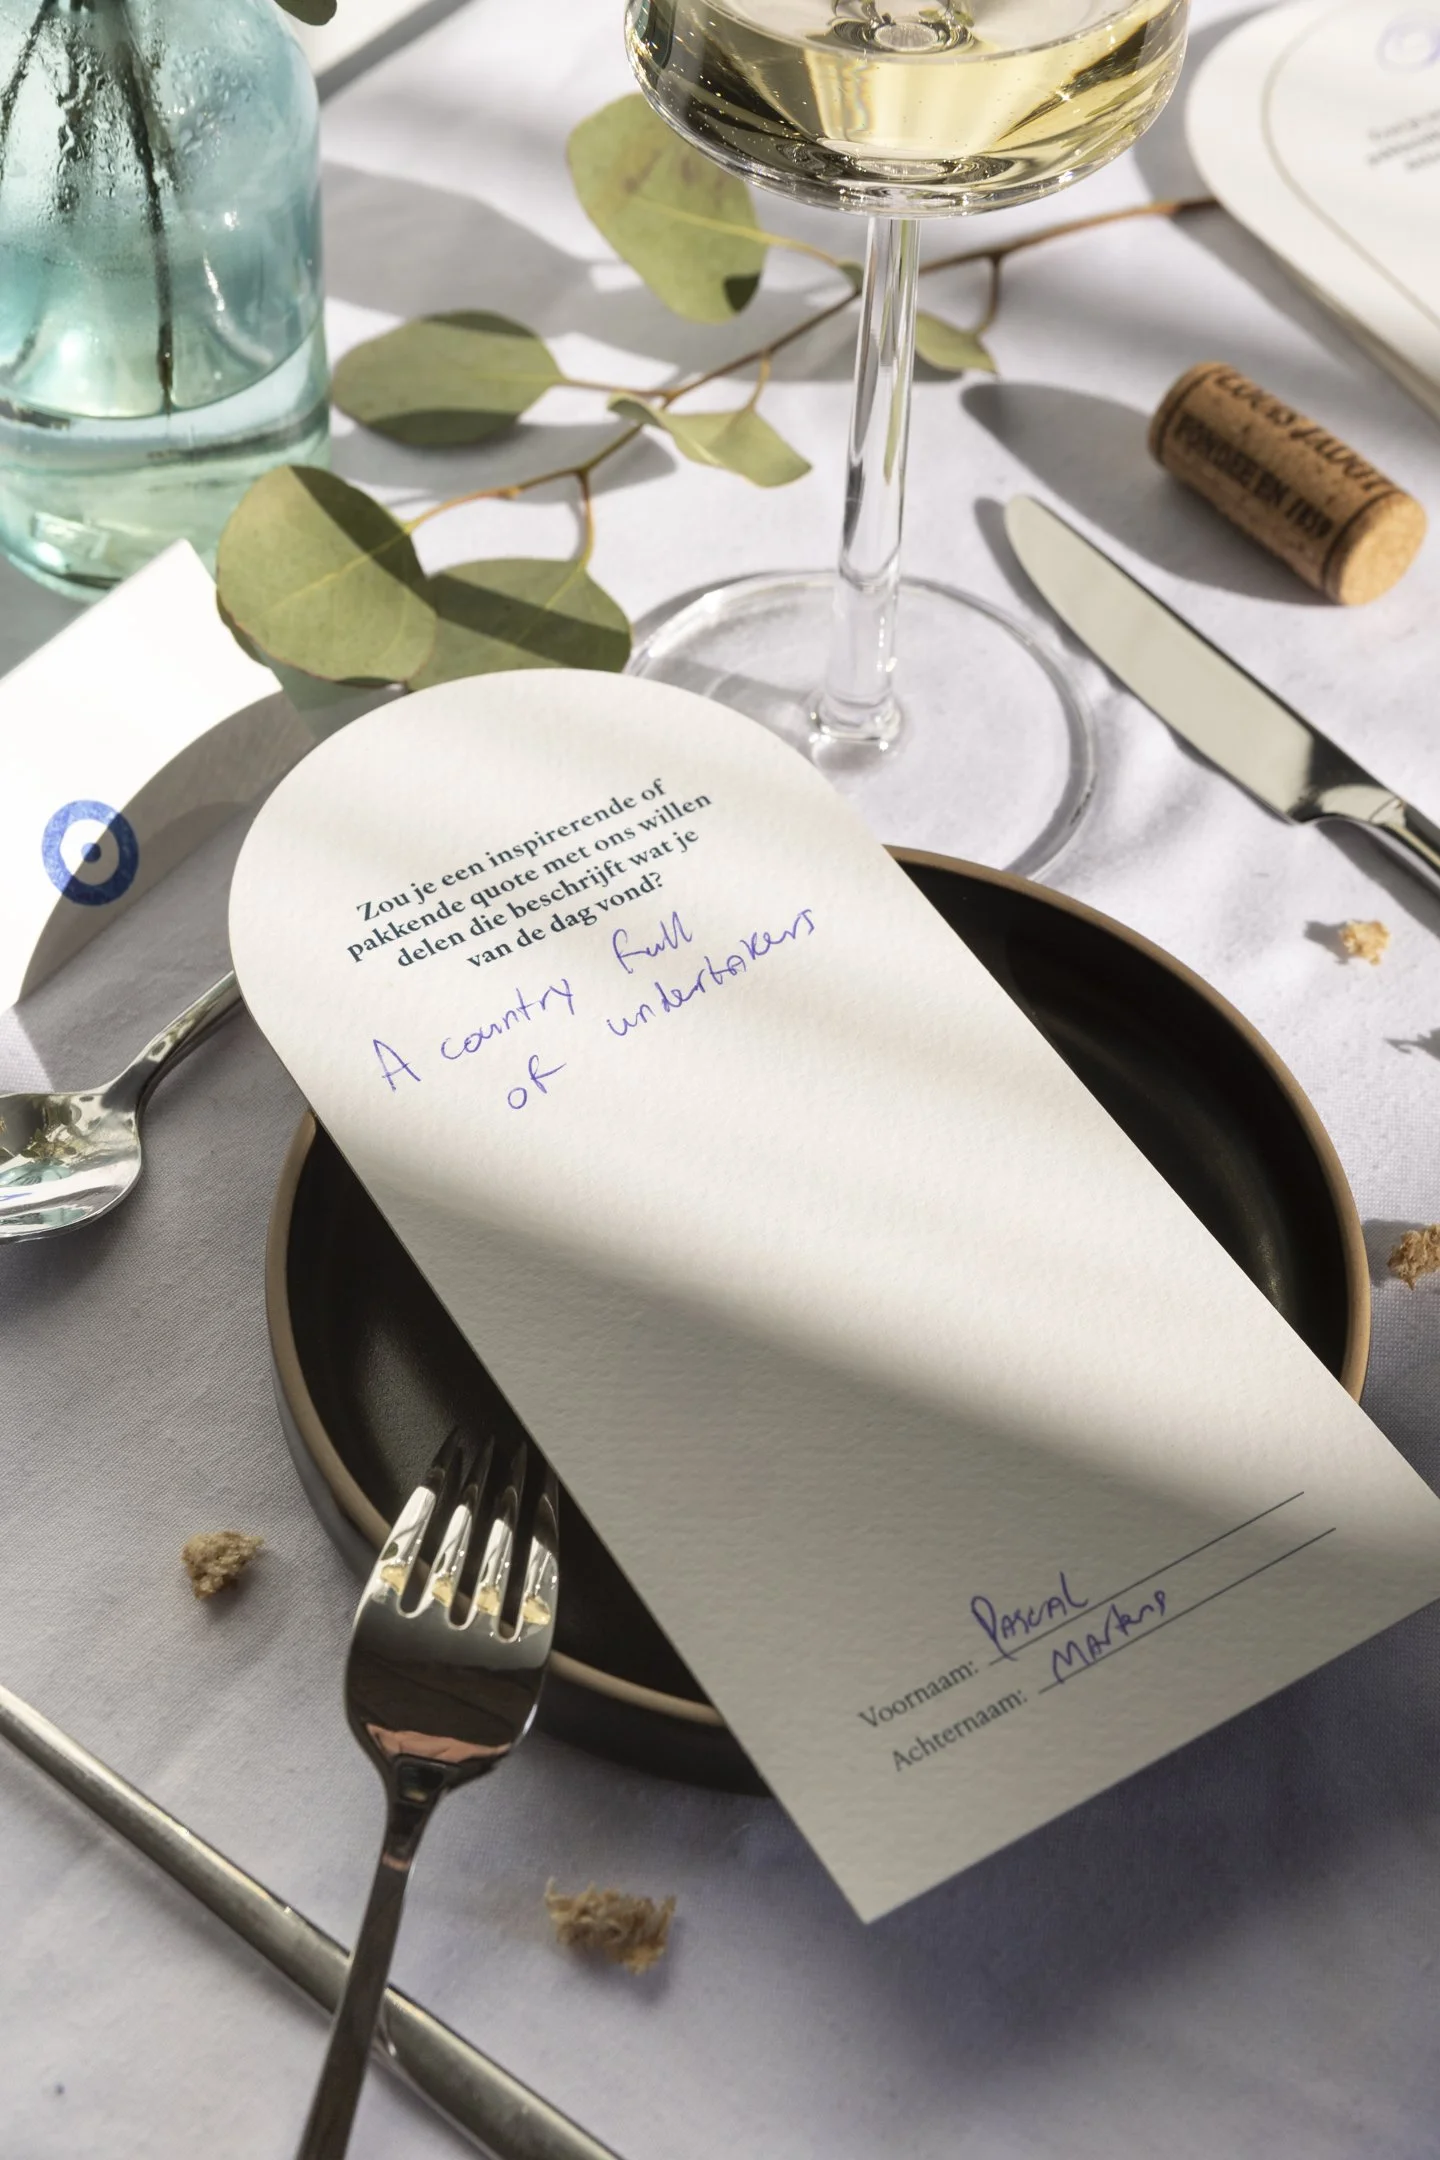 LOUIS JADOT
FONDEE EN 1859
Zou je een inspirerende of
pakkende quote met ons willen
delen die beschrijft wat je
van de dag vond?
A country full
of undertakers
Voornaam: Pascal
Achternaam: Martens